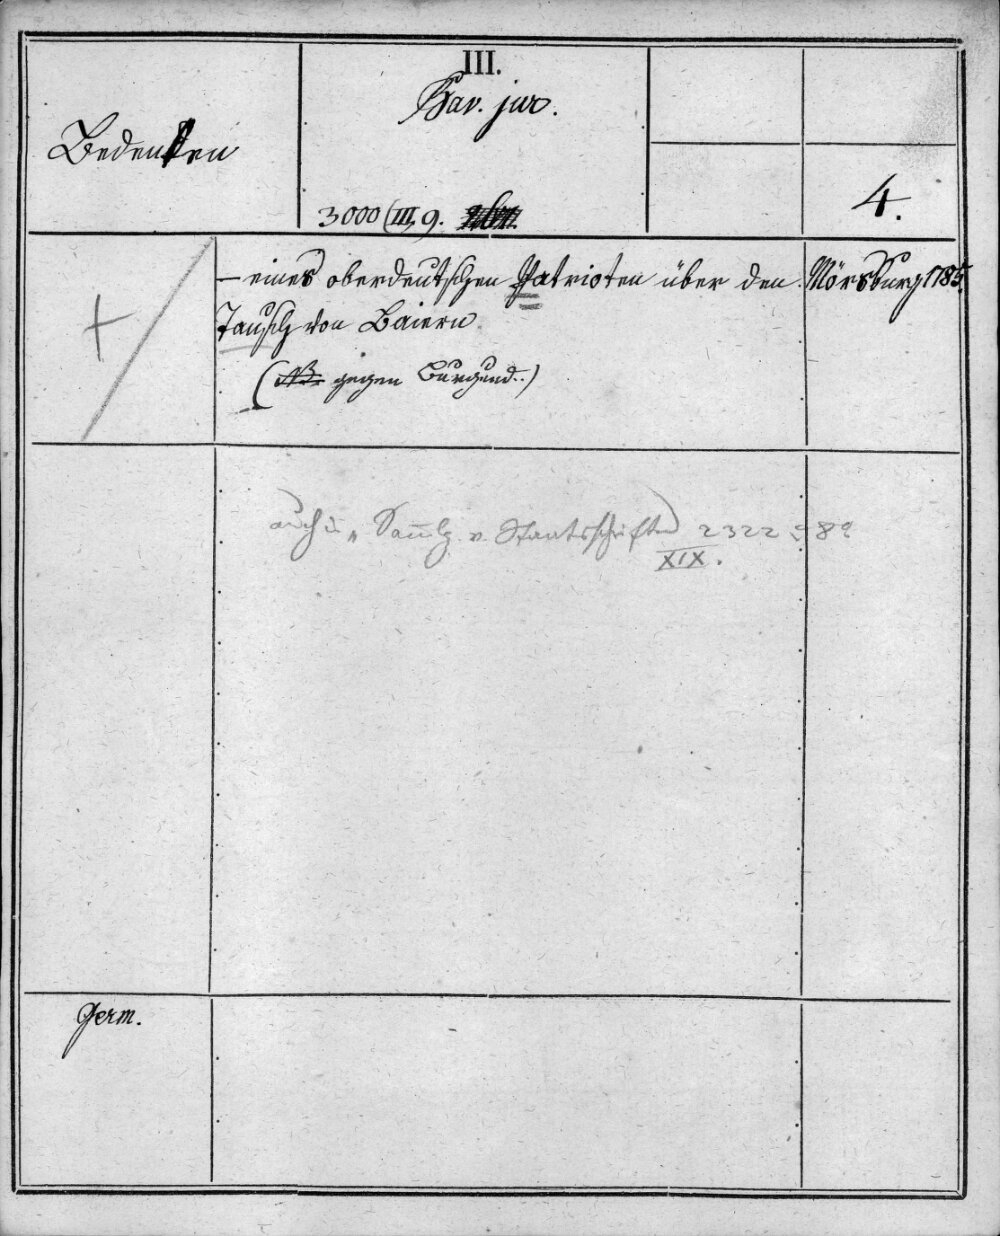 III.
Bav. jur.
Bedenken
4.
3000 (III, 9.
— eines oberdeutschen Patrioten über den
Mörsburg 1785
Tausch von Baiern
( gegen Burgund..)
auch i. „ Samlg v. Staatsschriften 2322
XIX.
Germ.